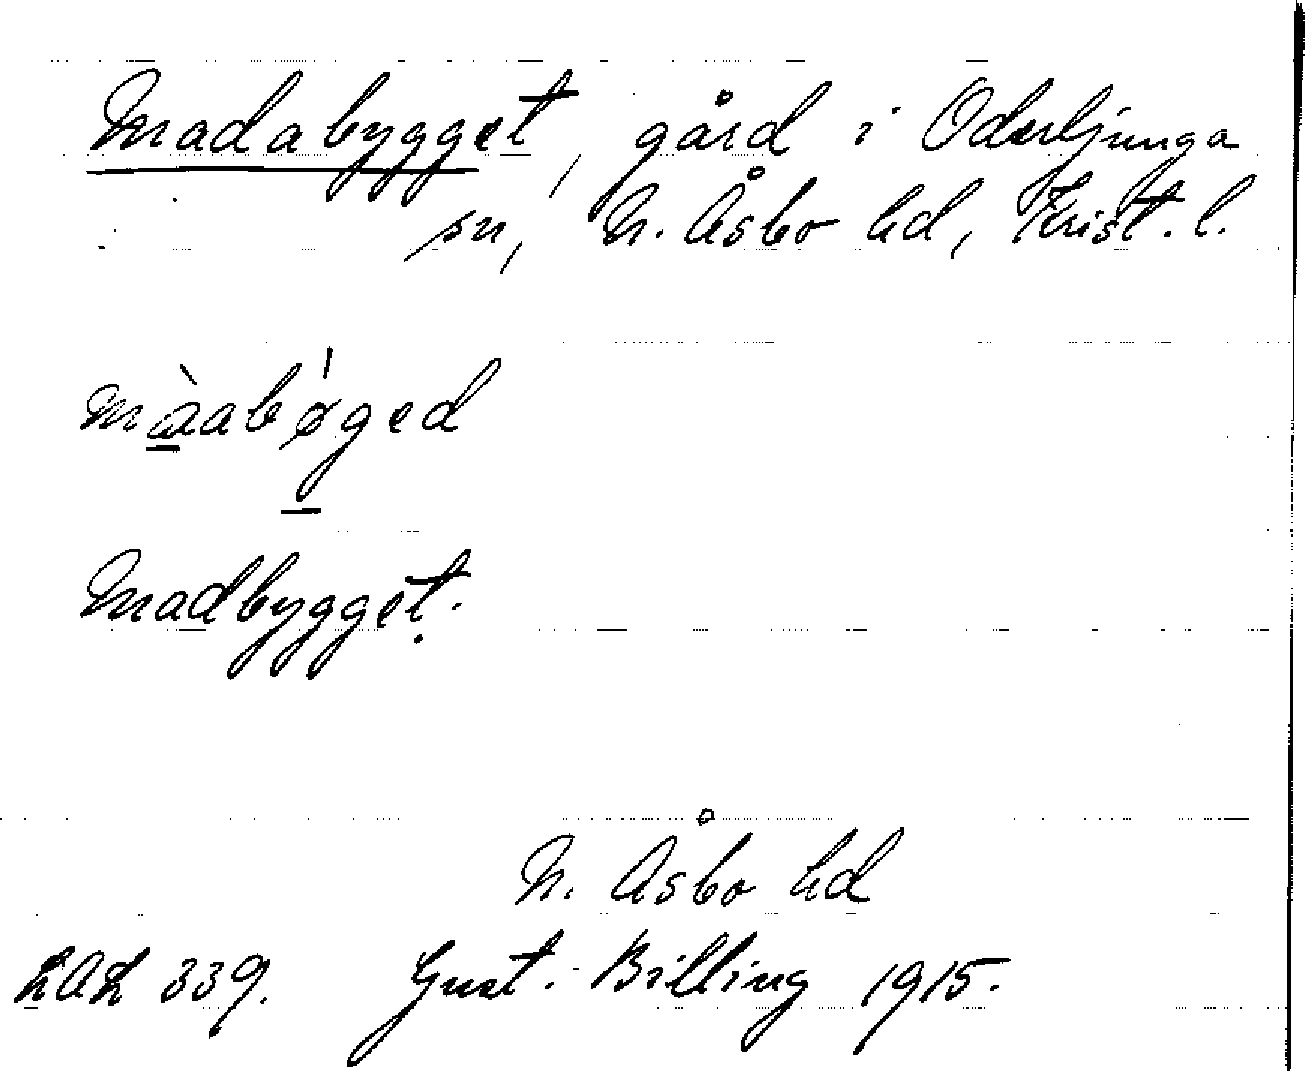 Madabygget, gård i Oderljunga
sn, N. Åsbo hd, Krist. l.
màabø̍ged
Madbygget.
N. Åsbo hd
LAL 339. Gust. Billing 1915.